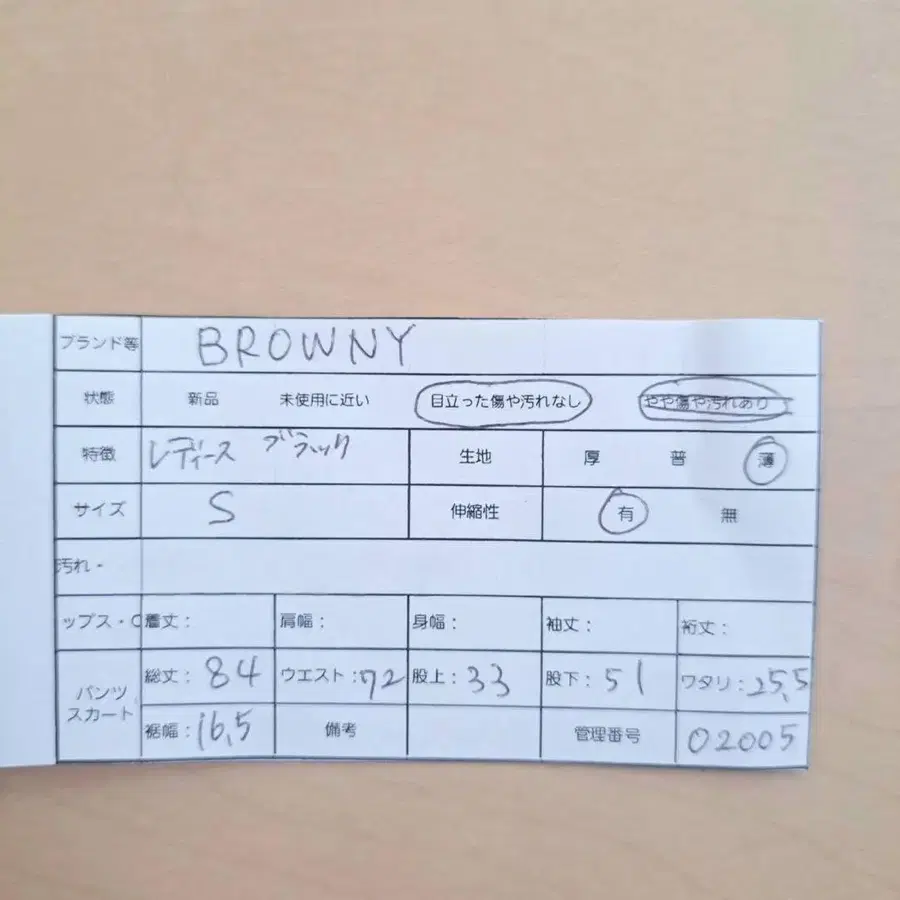 ブランド等 BROWNY
状態 新品 未使用に近い 目立った傷や汚れなし やや傷や汚れあり
特徴 レディース ブラック 生地 厚 普 薄
サイズ S 伸縮性 有 無
汚れ・
ップス・C 着丈: 肩幅: 身幅: 袖丈: 裄丈:
パンツ スカート 総丈:84 ウエスト:72 股上:33 股下:51 ワタリ:25,5
裾幅:16,5 備考 管理番号 02005